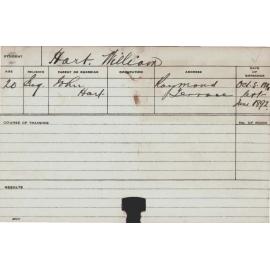 STUDENT Hart William
AGE RELIGION PARENT OR GUARDIAN OCCUPATION ADDRESS DATE OF ADMISSION
20 John Raymond Oct 5
Hart Terrace
June 1892
COURSE OF TRAINING NO. OF HOURS
RESULTS